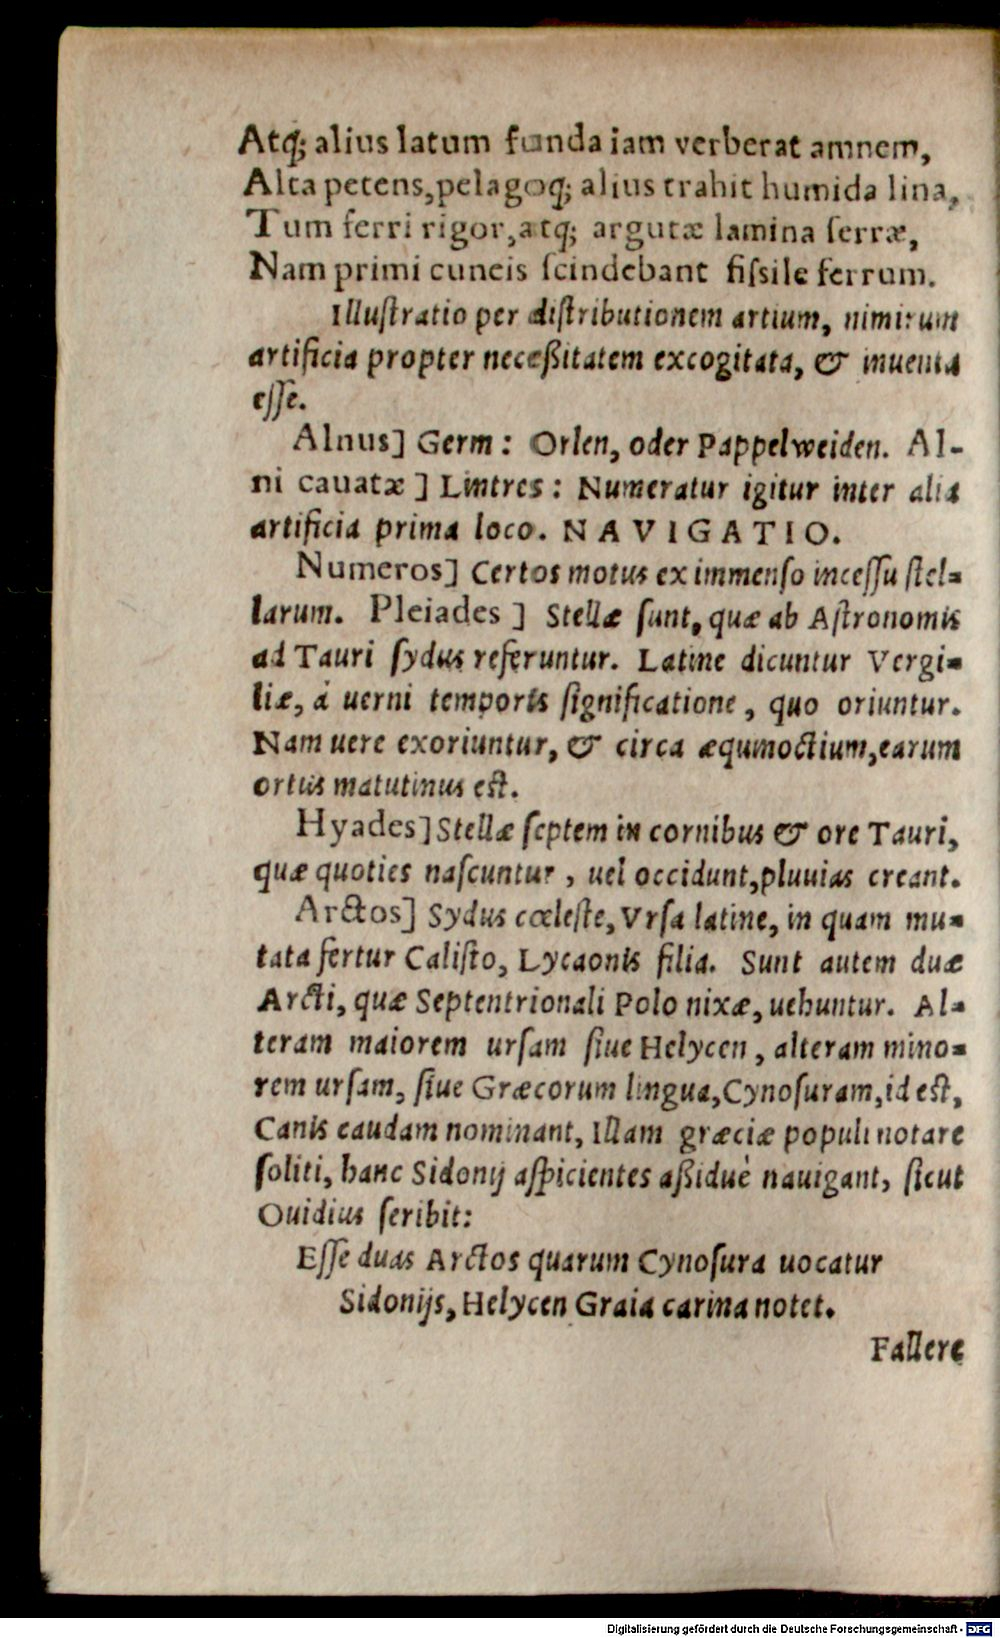 Atq; alius latum funda iam verberat amnem,
Alta petens, pelagoq; alius trahit humida lina,
Tum ferri rigor, atq; argutæ lamina ſerræ,
Nam primi cuneis ſcindebant fiſsile ferrum.
Illuſtratio per diſtributionem artium, nimirum
artificia propter neceßitatem excogitata, & inuenta
eſſe.
Alnus] Germ: Orlen, oder Pappelweiden. Al-
ni cauatæ] Lintres: Numeratur igitur inter alia
artificia prima loco. NAVIGATIO.
Numeros] Certos motus ex immenſo inceſſu ſtel-
larum. Pleiades] Stellæ ſunt, quæ ab Aſtronomis
ad Tauri ſydus referuntur. Latine dicuntur Vergi-
liæ, à uerni temporis ſignificatione, quo oriuntur.
Nam uere exoriuntur, & circa æquinoctium, earum
ortus matutinus eſt.
Hyades] Stellæ ſeptem in cornibus & ore Tauri,
quæ quoties naſcuntur, uel occidunt, pluuias creant.
Arctos] Sydus cœleſte, Vrſa latine, in quam mu-
tata fertur Caliſto, Lycaonis filia. Sunt autem duæ
Arcti, quæ Septentrionali Polo nixæ, uehuntur. Al-
teram maiorem urſam ſiue Helycen, alteram mino-
rem urſam, ſiue Græcorum lingua, Cynoſuram, id eſt,
Canis caudam nominant, Illam græciæ populi notare
ſoliti, hanc Sidonij aſpicientes aßiduè nauigant, ſicut
Ouidius ſcribit:
Eſſe duas Arctos quarum Cynoſura uocatur
Sidonijs, Helycen Graia carina notet.
Fallere
Digitalisierung gefördert durch die Deutsche Forschungsgemeinschaft - DFG